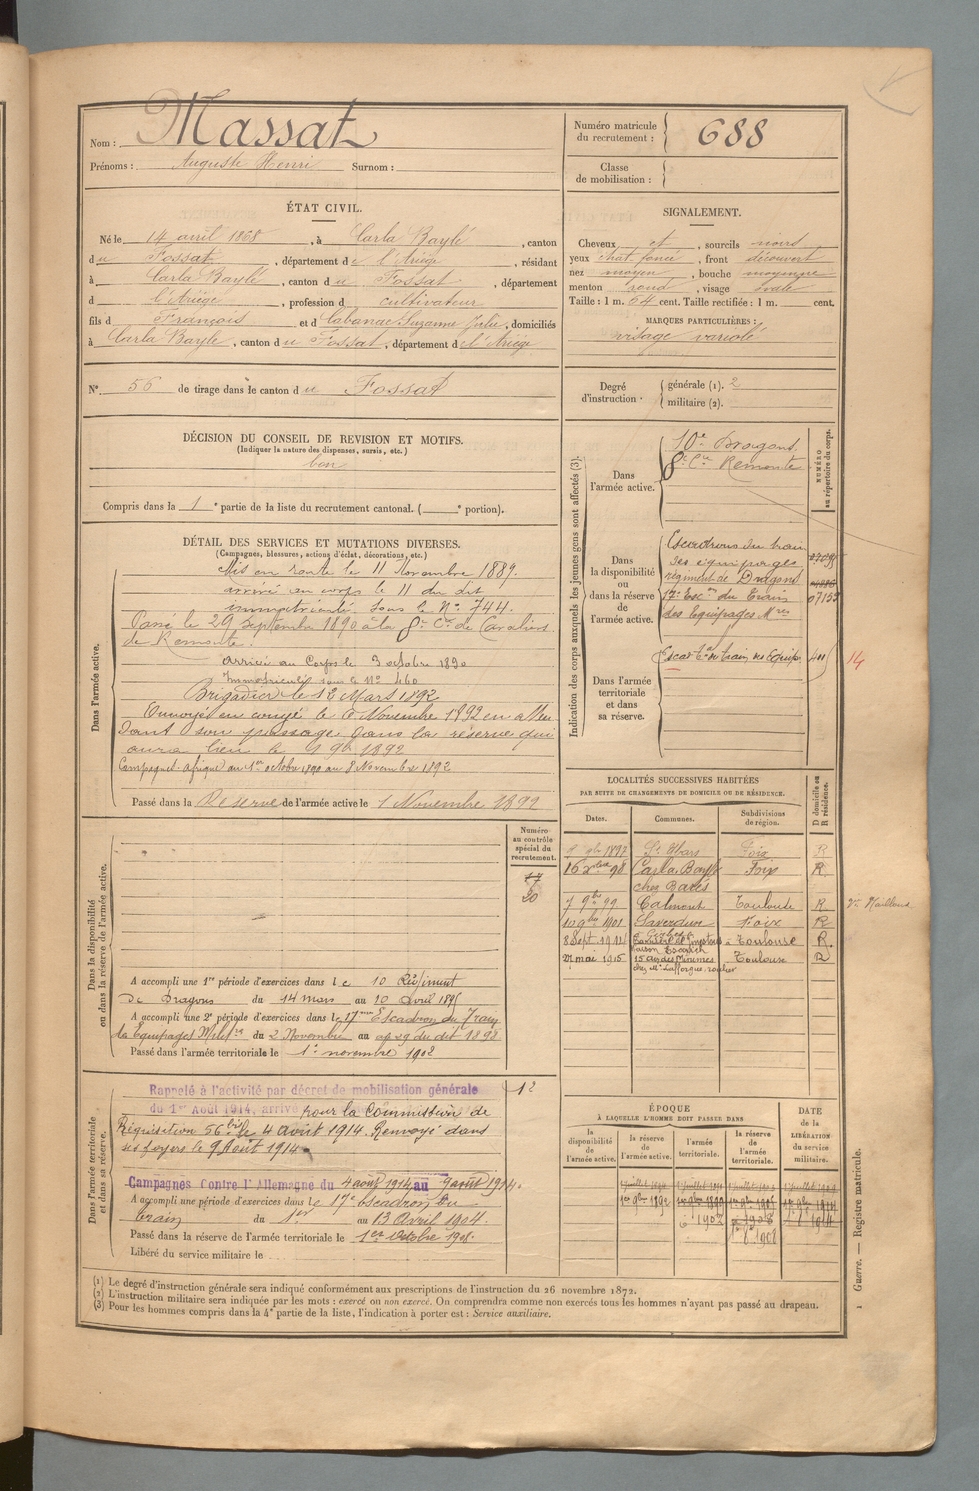 Nom : Massat
Prénoms : Auguste Henri Surnom :
Numéro matricule du recrutement : 688
Classe de mobilisation :
ÉTAT CIVIL.
Né le 14 avril 1868, à Carla Bayle, canton
du Fossat, département de l'Ariège, résidant
à Carla Bayle, canton du Fossat, département
d l'Ariège, profession d cultivateur
fils d François et d Cabanac Suzanne Julie, domiciliés
à Carla Bayle, canton du Fossat, département de l'Ariège
N° 56 de tirage dans le canton du Fossat
SIGNALEMENT.
Cheveux et, sourcils noirs
yeux chat. foncé, front découvert
nez moyen, bouche moyenne
menton rond, visage ovale
Taille : 1 m. 64 cent. Taille rectifiée : 1 m. cent.
MARQUES PARTICULIÈRES :
visage variolé
Degré d'instruction. générale (1). 2
militaire (2).
DÉCISION DU CONSEIL DE REVISION ET MOTIFS.
(Indiquer la nature des dispenses, sursis, etc.)
bon
Compris dans la 1e partie de la liste du recrutement cantonal. ( e portion).
DÉTAIL DES SERVICES ET MUTATIONS DIVERSES.
(Campagnes, blessures, actions d'éclat, décorations, etc.)
Dans l'armée active.
Mis en route le 11 Novembre 1889.
arrivé au corps le 11 du dit
immatriculé sous le N° 744.
Passé le 29 Septembre 1890 à la 8e Cie de Cavaliers
de Remonte.
Arrivé au Corps le 3 octobre 1890
Immatriculé sous le N° 460
Brigadier le 12 Mars 1892
Envoyé en congé le 8 Novembre 1892 en atten
dant son passage dans la réserve qui
aura lieu le 1 9bre 1892
Campagnes. Afrique du 1er octobre 1890 au 8 Novembre 1892
Passé dans la Réserve de l'armée active le 1 Novembre 1892
Indication des corps auxquels les jeunes gens sont affectés (3).
NUMÉRO au répertoire du corps.
Dans l'armée active.
10e Dragons
8e Cie Remonte
Dans la disponibilité ou dans la réserve de l'armée active.
Escadrons du train
des équipages
régiment de Dragons
17e Escon du Train 07153
des Equipages Mres
Dans l'armée territoriale et dans sa réserve.
Escon tal du train des Equip. 401
14
LOCALITÉS SUCCESSIVES HABITÉES
PAR SUITE DE CHANGEMENTS DE DOMICILE OU DE RÉSIDENCE.
Dates. Communes. Subdivisions de région. D domicile ou R résidence.
9bre 1892 St Ybars Foix R
16 Xbre 98 Carla Bayle Foix R
chez Bares
7 9bre 99 Calmont Toulouse R Vve Mailleux
10 9bre 1901 Saverdun Foix R
8 Sept 1912 Toulouse R.
21 mai 1915 15 des Minimes Toulouse R
chez Mr Lafforgue, roulier
Dans la disponibilité ou dans la réserve de l'armée active.
Numéro au contrôle spécial du recrutement.
20
A accompli une 1re période d'exercices dans le 10 Régiment
de Dragons du 14 mars au 10 avril 189
A accompli une 2e période d'exercices dans le 17ème Escadron du Train
des Equipages Milres du 2 Novembre au 29 du dit 1898
Passé dans l'armée territoriale le 1er novembre 1902
Dans l'armée territoriale et dans sa réserve.
12
Rappelé à l'activité par décret de mobilisation générale
du 1er Août 1914, arrivé pour la Commission de
Réquisition 56 bis le 4 août 1914. Renvoyé dans
ses foyers le 9 Août 1914
Campagnes Contre l'Allemagne du 4 août 1914 au 9 août 1914.
A accompli une période d'exercices dans le 17e Escadron du
train du 1er au 13 Avril 1904.
Passé dans la réserve de l'armée territoriale le 1er Octobre 1908.
Libéré du service militaire le
ÉPOQUE
À LAQUELLE L'HOMME DOIT PASSER DANS
la disponibilité de l'armée active. la réserve de l'armée active. l'armée territoriale. la réserve de l'armée territoriale.
DATE de la LIBÉRATION du service militaire.
1er 9bre 1892
(1) Le degré d'instruction générale sera indiqué conformément aux prescriptions de l'instruction du 26 novembre 1872.
(2) L'instruction militaire sera indiquée par les mots : exercé ou non exercé. On comprendra comme non exercés tous les hommes n'ayant pas passé au drapeau.
(3) Pour les hommes compris dans la 4e partie de la liste, l'indication à porter est : Service auxiliaire.
1 Guerre. — Registre matricule.